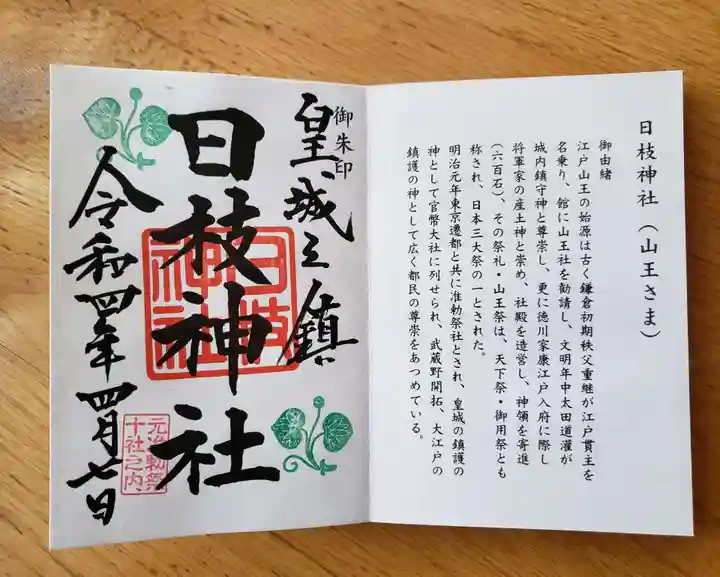 日枝神社(山王さま)
御由緒
江戸山王の始源は古く鎌倉初期秩父重継が江戸貫主を
名乗り、館に山王社を勧請し、文明年中太田道灌が
城内鎮守神と尊崇し、更に徳川家康江戸入府に際し
将軍家の産土神と崇め、社殿を造営し、神領を寄進
(六百石)、その祭礼・山王祭は、天下祭・御用祭とも
称され、日本三大祭の一とされた。
明治元年東京遷都と共に准勅祭社とされ、皇城の鎮護の
神として官幣大社に列せられ、武蔵野開拓、大江戸の
鎮護の神として広く都民の尊崇をあつめている。
御朱印
皇城之鎮
日枝神社
日枝
神社
令和四年四月七日
元准勅祭
十社之内